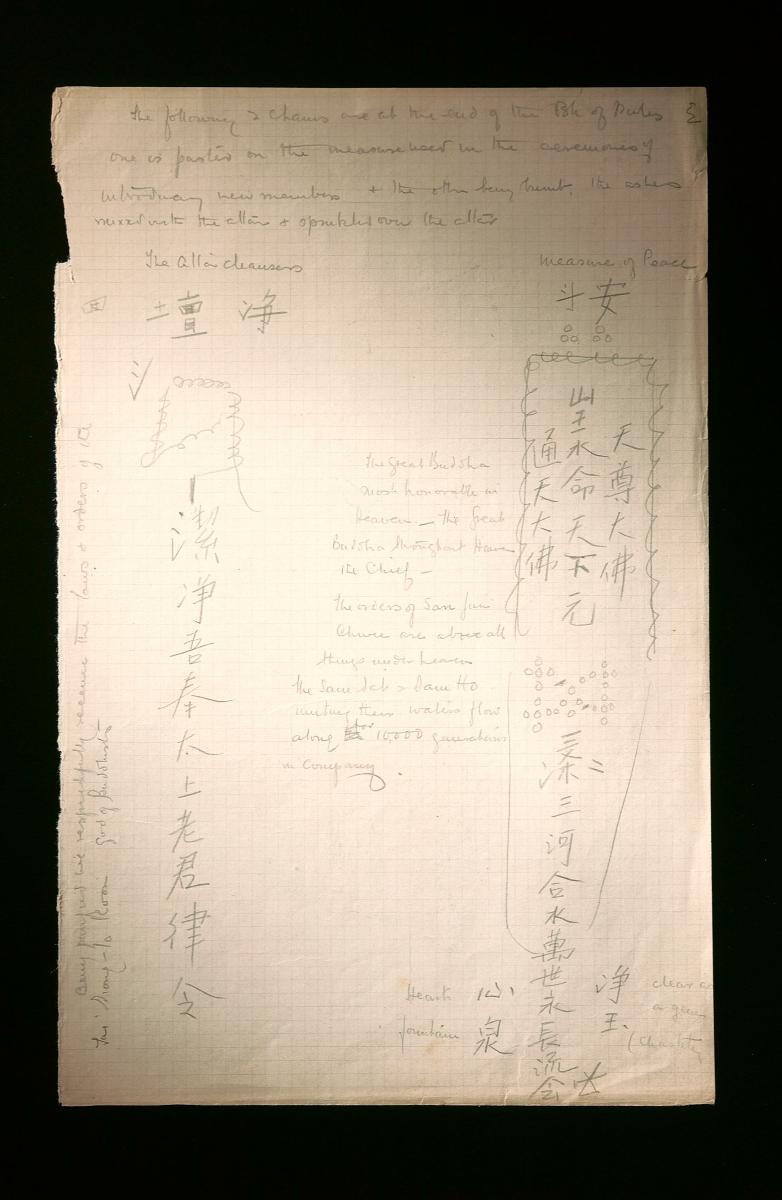 The following 2 Charms are at the end of the Bk of Rules
one is pasted on the measure used in the ceremonies of
introducing new members + the other being burnt, the ashes
mixed with the altar + sprinkled over the altar
The Altar cleansers
measure of Peace
壇 净
斗 安
天尊大佛
山王水命天下元
通天大佛
潔净吾奉太上老君律令
The Great Buddha
most honorable in
Heaven — The Great
Buddha throughout Heaven
the Chief —
The orders of San
are above all
things under heaven
The Sam + Sam Ho
uniting their waters flow
along for 10,000 generations
in Company.
三
三河合水萬世永長流
净玉
心泉
Heart
fountain
clear as
a gem
(Chastity
Being purified we respectfully receive the laws + orders of the
god of Buddhists